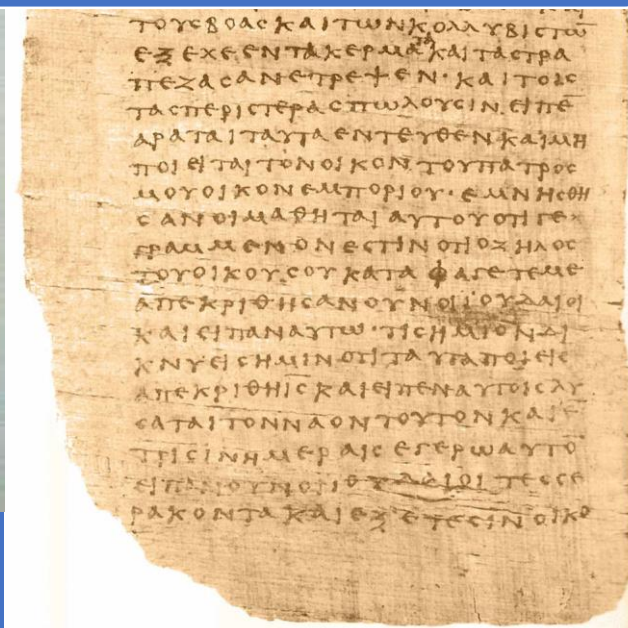 ΤΟΥϹΒΟΑϹΚΑΙΤΩΝΚΟΛΛΥΒΙϹΤΩ̅
ΕΞΕΧΕΕΝΤΑΚΕΡΜΑΤΑΚΑΙΤΑϹΤΡΑ
ΠΕΖΑϹΑΝΕΤΡΕΨΕΝ·ΚΑΙΤΟΙϹ
ΤΑϹΠΕΡΙϹΤΕΡΑϹΠΩΛΟΥϹΙΝ ΕΙΠΕ
ΑΡΑΤΑΙΤΑΥΤΑΕΝΤΕΥΘΕΝΚΑΙΜΗ
ΠΟΙΕΙΤΑΙΤΟΝΟΙΚΟΝ ΤΟΥΠΑΤΡΟϹ
ΜΟΥΟΙΚΟΝΕΜΠΟΡΙΟΥ·ΕΜΝΗϹΘΗ
ϹΑΝΟΙΜΑΘΗΤΑΙΑΥΤΟΥΟΤΙΓΕ
ΓΡΑΜΜΕΝΟΝΕϹΤΙΝΟΤΙΟΖΗΛΟϹ
ΤΟΥΟΙΚΟΥϹΟΥΚΑΤΑΦΑΓΕΤΕΜΕ
ΑΠΕΚΡΙΘΗϹΑΝΟΥΝΟΙΙΟΥΔΑΙΟΙ
ΚΑΙΕΙΠΑΝΑΥΤΩ·ΤΙϹΗΜΙΟΝΔΙ
ΚΝΥΕΙϹΗΜΙΝΟΤΙΤΑΥΤΑΠΟΙΕΙϹ
ΑΠΕΚΡΙΘΗΙ̅Ϲ̅ΚΑΙΕΙΠΕΝΑΥΤΟΙϹΛΥ
ϹΑΤΑΙΤΟΝΝΑΟΝΤΟΥΤΟΝΚΑΙΕ
ΤΡΙϹΙΝΗΜΕΡΑΙϹΕΓΕΡΩΑΥΤΟ̅
ΕΙΠΑΝΟΥΝΟΙΙΟΥΔΑΙΟΙ ΤΕϹϹΕ
ΡΑΚΟΝΤΑΚΑΙΕΞΕΤΕϹΙΝΟΙΚΟ